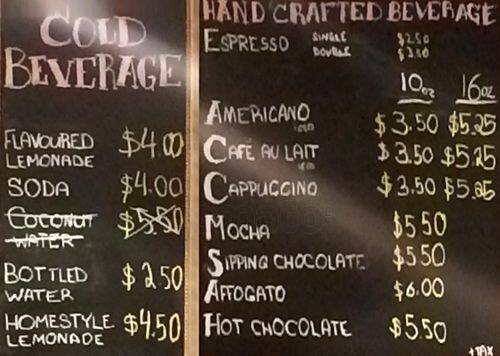 COLD
BEVERAGE
FLAVOURED $4.00
LEMONADE
SODA $4.00
COCONUT $5.50
WATER
BOTTLED $2.50
WATER
HOMESTYLE $4.50
LEMONADE
HAND CRAFTED BEVERAGE
ESPRESSO SINGLE $2.50
DOUBLE $3.50
10oz 16oz
AMERICANO $3.50 $5.25
CAFÉ AU LAIT $3.50 $5.25
CAPPUCCINO $3.50 $5.25
MOCHA $5.50
SIPPING CHOCOLATE $5.50
AFFOGATO $6.00
HOT CHOCOLATE $5.50
+TAX